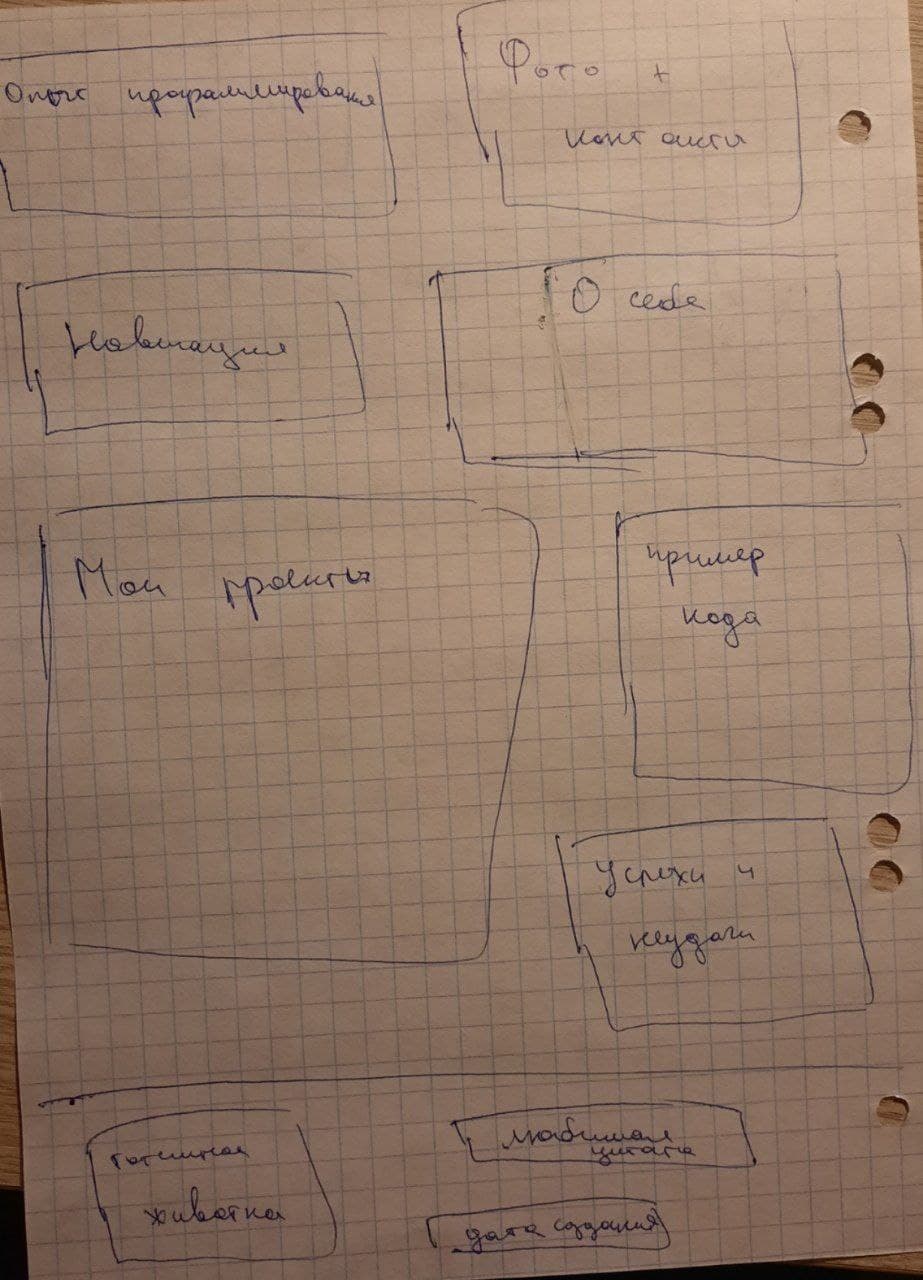 Опыт программирования
Фото +
контакты
Навигация
О себе
Мои проекты
пример
кода
Успехи и
неудачи
тотемная
животка
любимая
цитата
дата создания